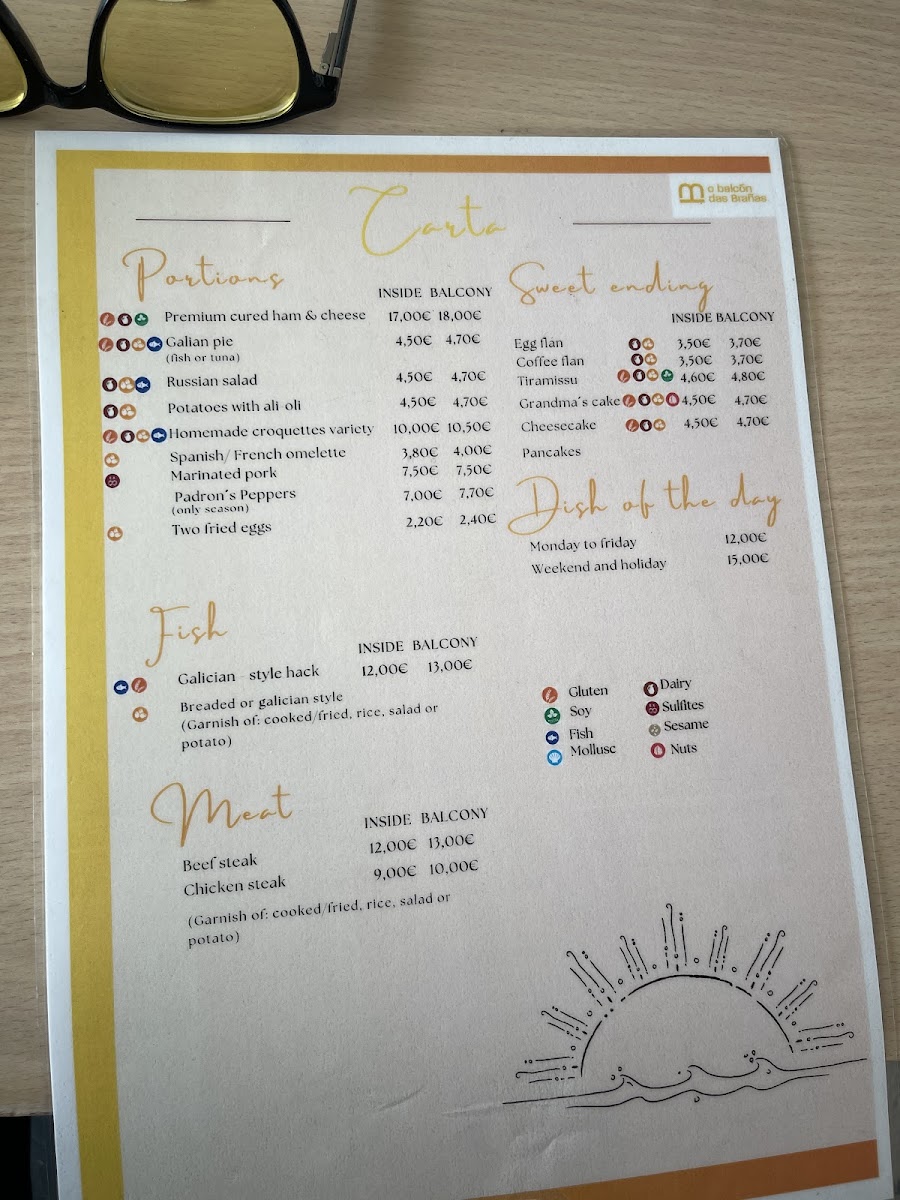 o balcón
das Brañas
Carta
Portions
INSIDE BALCONY
Premium cured ham & cheese 17,00€ 18,00€
Galian pie 4,50€ 4,70€
(fish or tuna)
Russian salad 4,50€ 4,70€
Potatoes with ali-oli 4,50€ 4,70€
Homemade croquettes variety 10,00€ 10,50€
Spanish/ French omelette 3,80€ 4,00€
Marinated pork 7,50€ 7,50€
Padron´s Peppers 7,00€ 7,70€
(only season)
Two fried eggs 2,20€ 2,40€
Fish
INSIDE BALCONY
Galician - style hack 12,00€ 13,00€
Breaded or galician style
(Garnish of: cooked/fried, rice, salad or
potato)
Meat
INSIDE BALCONY
Beef steak 12,00€ 13,00€
Chicken steak 9,00€ 10,00€
(Garnish of: cooked/fried, rice, salad or
potato)
Sweet ending
INSIDE BALCONY
Egg flan 3,50€ 3,70€
Coffee flan 3,50€ 3,70€
Tiramissu 4,60€ 4,80€
Grandma´s cake 4,50€ 4,70€
Cheesecake 4,50€ 4,70€
Pancakes
Dish of the day
Monday to friday 12,00€
Weekend and holiday 15,00€
Gluten Dairy
Soy Sulfites
Fish Sesame
Mollusc Nuts